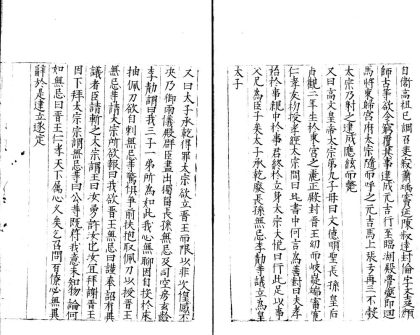 自衛高祖已調召裴寂蕭瑀竇誕陳叔達封倫宇文士及顏
師古等欲令窮覆其事建成元吉行至臨湖殿覺變即迴
馬將東歸宮府太宗隨而呼之元吉馬上張弓再三不彀
太宗乃射之建成應弦而斃
又曰高文皇帝太宗第九子母曰文德順聖長孫皇后
貞觀二年生於東宮之麗正殿封晉王幼而岐嶷端審寬
仁孝友初授孝經太宗問曰此書中何言為要對曰夫孝
始於事親中於事君終於立身太宗大悅曰行此足以事
父兄為臣子矣太子承乾廢長孫無忌李勣等議立為皇
太子
又曰太子承乾得罪太宗欲立晉王而限以非次徊惶不
決乃御兩儀殿群臣盡出獨留長孫無忌及司空房玄齡
李勣謂曰我三子一弟所為如此我心無聊因自投於床
抽佩刀欲自刺無忌等驚懼爭前扶抱取佩刀以授晉王
無忌等請太宗所欲報曰我欲晉王無忌曰謹奉詔有異
議者臣請斬之太宗謂王曰汝舅許汝也汝宜拜謝晉王
因下拜太宗謂無忌等曰公等既符我意未知物論何
如無忌曰晉王仁孝天下屬心久矣乞召問百僚必無異
辭於是建立遂定